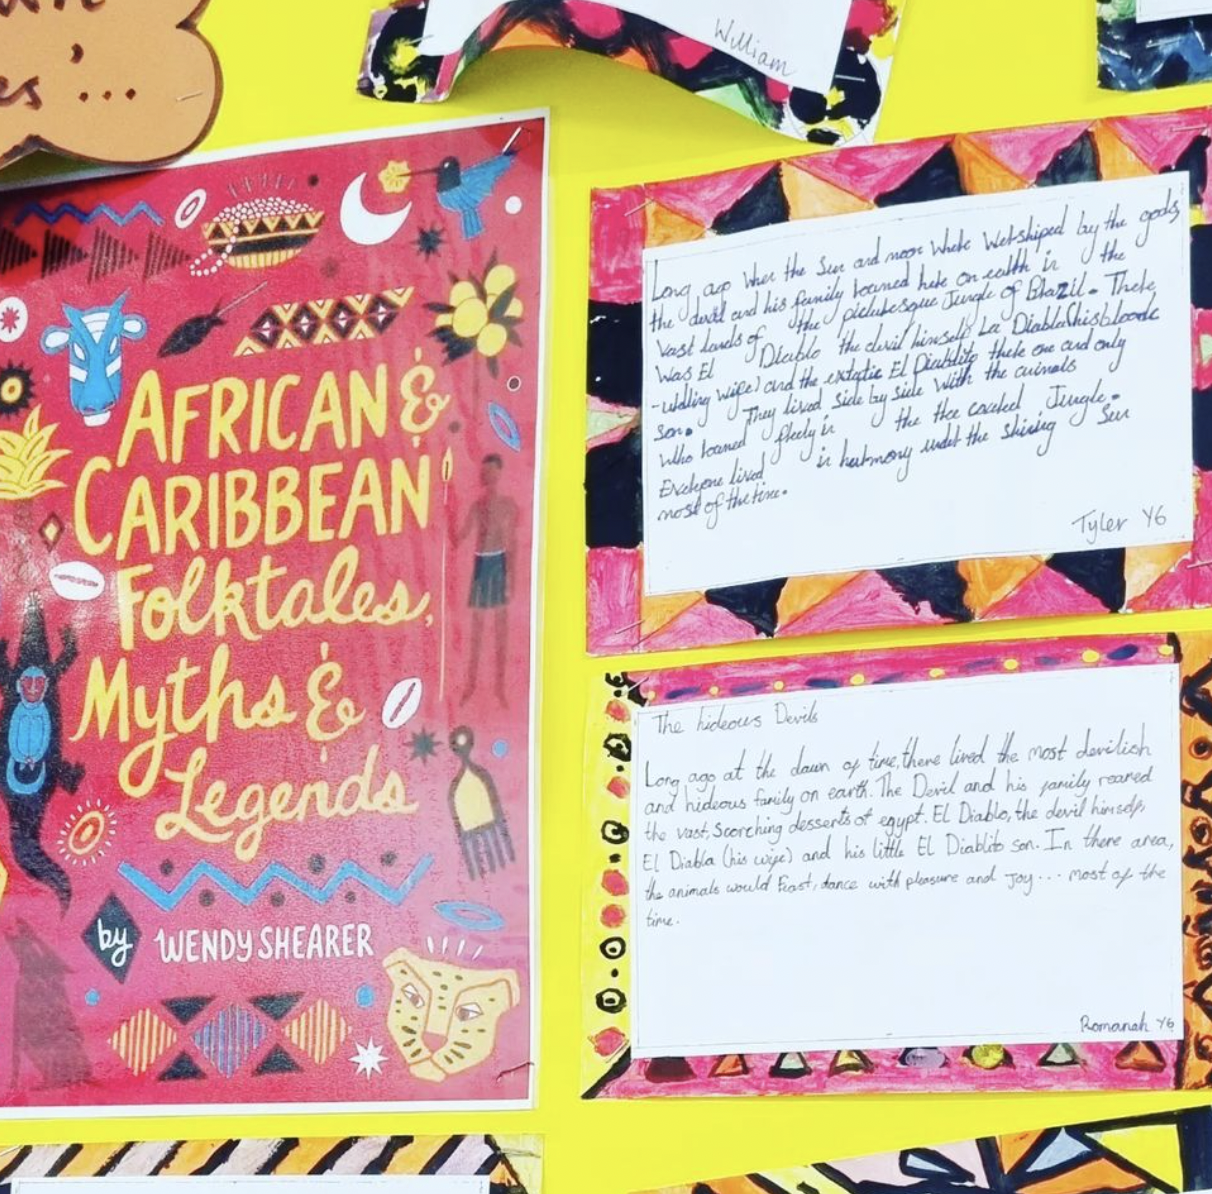 es'...
William
AFRICAN &
CARIBBEAN
Folktales,
Myths &
Legends
by WENDY SHEARER
Long ago when the Sun and moon where wershiped by the gods,
the devil and his family roamed here on earth in the
vast lands of the picturesque Jungle of Brazil. There
was El Diablo the devil himself, La Diabla (his bloode
-
wife) and the El Diablito there one and only
son. They lived side by side with the animals
who roamed freely in the tree Jungle.
Everyone lived in harmony under the shining Sun
most of the time.
Tyler Y6
The hideous Devils
Long ago at the dawn of time, there lived the most devilish
and hideous family on earth. The Devil and his family roamed
the vast, scorching desserts of egypt. El Diablo, the devil himself,
El Diabla (his wife) and his little El Diablito son. In there area,
the animals would feast, dance with pleasure and Joy... most of the
time.
Romanah Y6